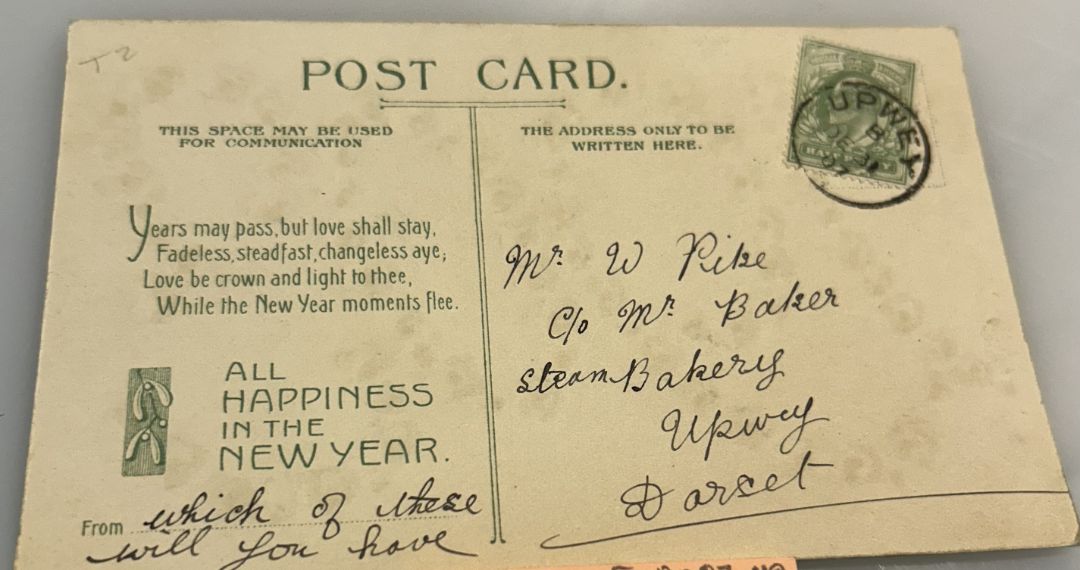 T2
POST CARD.
THIS SPACE MAY BE USED
FOR COMMUNICATION
THE ADDRESS ONLY TO BE
WRITTEN HERE.
UPWEY
B
DE 31
07
HALFPENNY
Years may pass, but love shall stay,
Fadeless, steadfast, changeless aye;
Love be crown and light to thee,
While the New Year moments flee.
ALL
HAPPINESS
IN THE
NEW YEAR.
From which of these
will you have
Mr. W Pike
C/o Mr. Baker
Steam Bakery
Upwey
Dorset